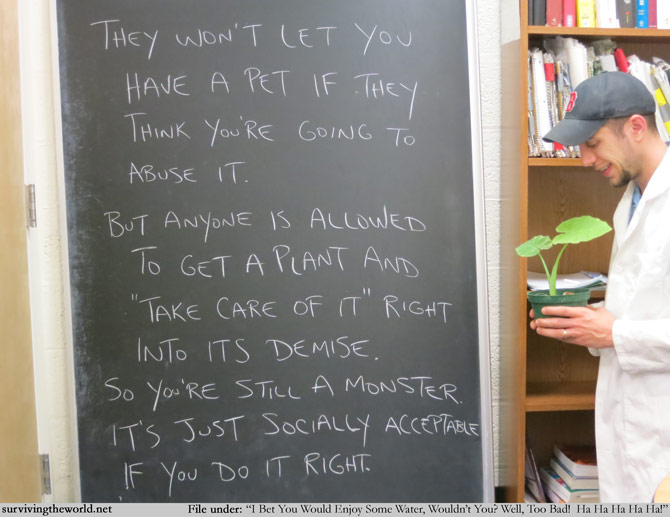 THEY WON'T LET YOU
HAVE A PET IF THEY
THINK YOU'RE GOING TO
ABUSE IT.
BUT ANYONE IS ALLOWED
TO GET A PLANT AND
"TAKE CARE OF IT" RIGHT
INTO ITS DEMISE.
SO YOU'RE STILL A MONSTER.
IT'S JUST SOCIALLY ACCEPTABLE
IF YOU DO IT RIGHT.
survivingtheworld.net
File under: "I Bet You Would Enjoy Some Water, Wouldn't You? Well, Too Bad! Ha Ha Ha Ha Ha!"